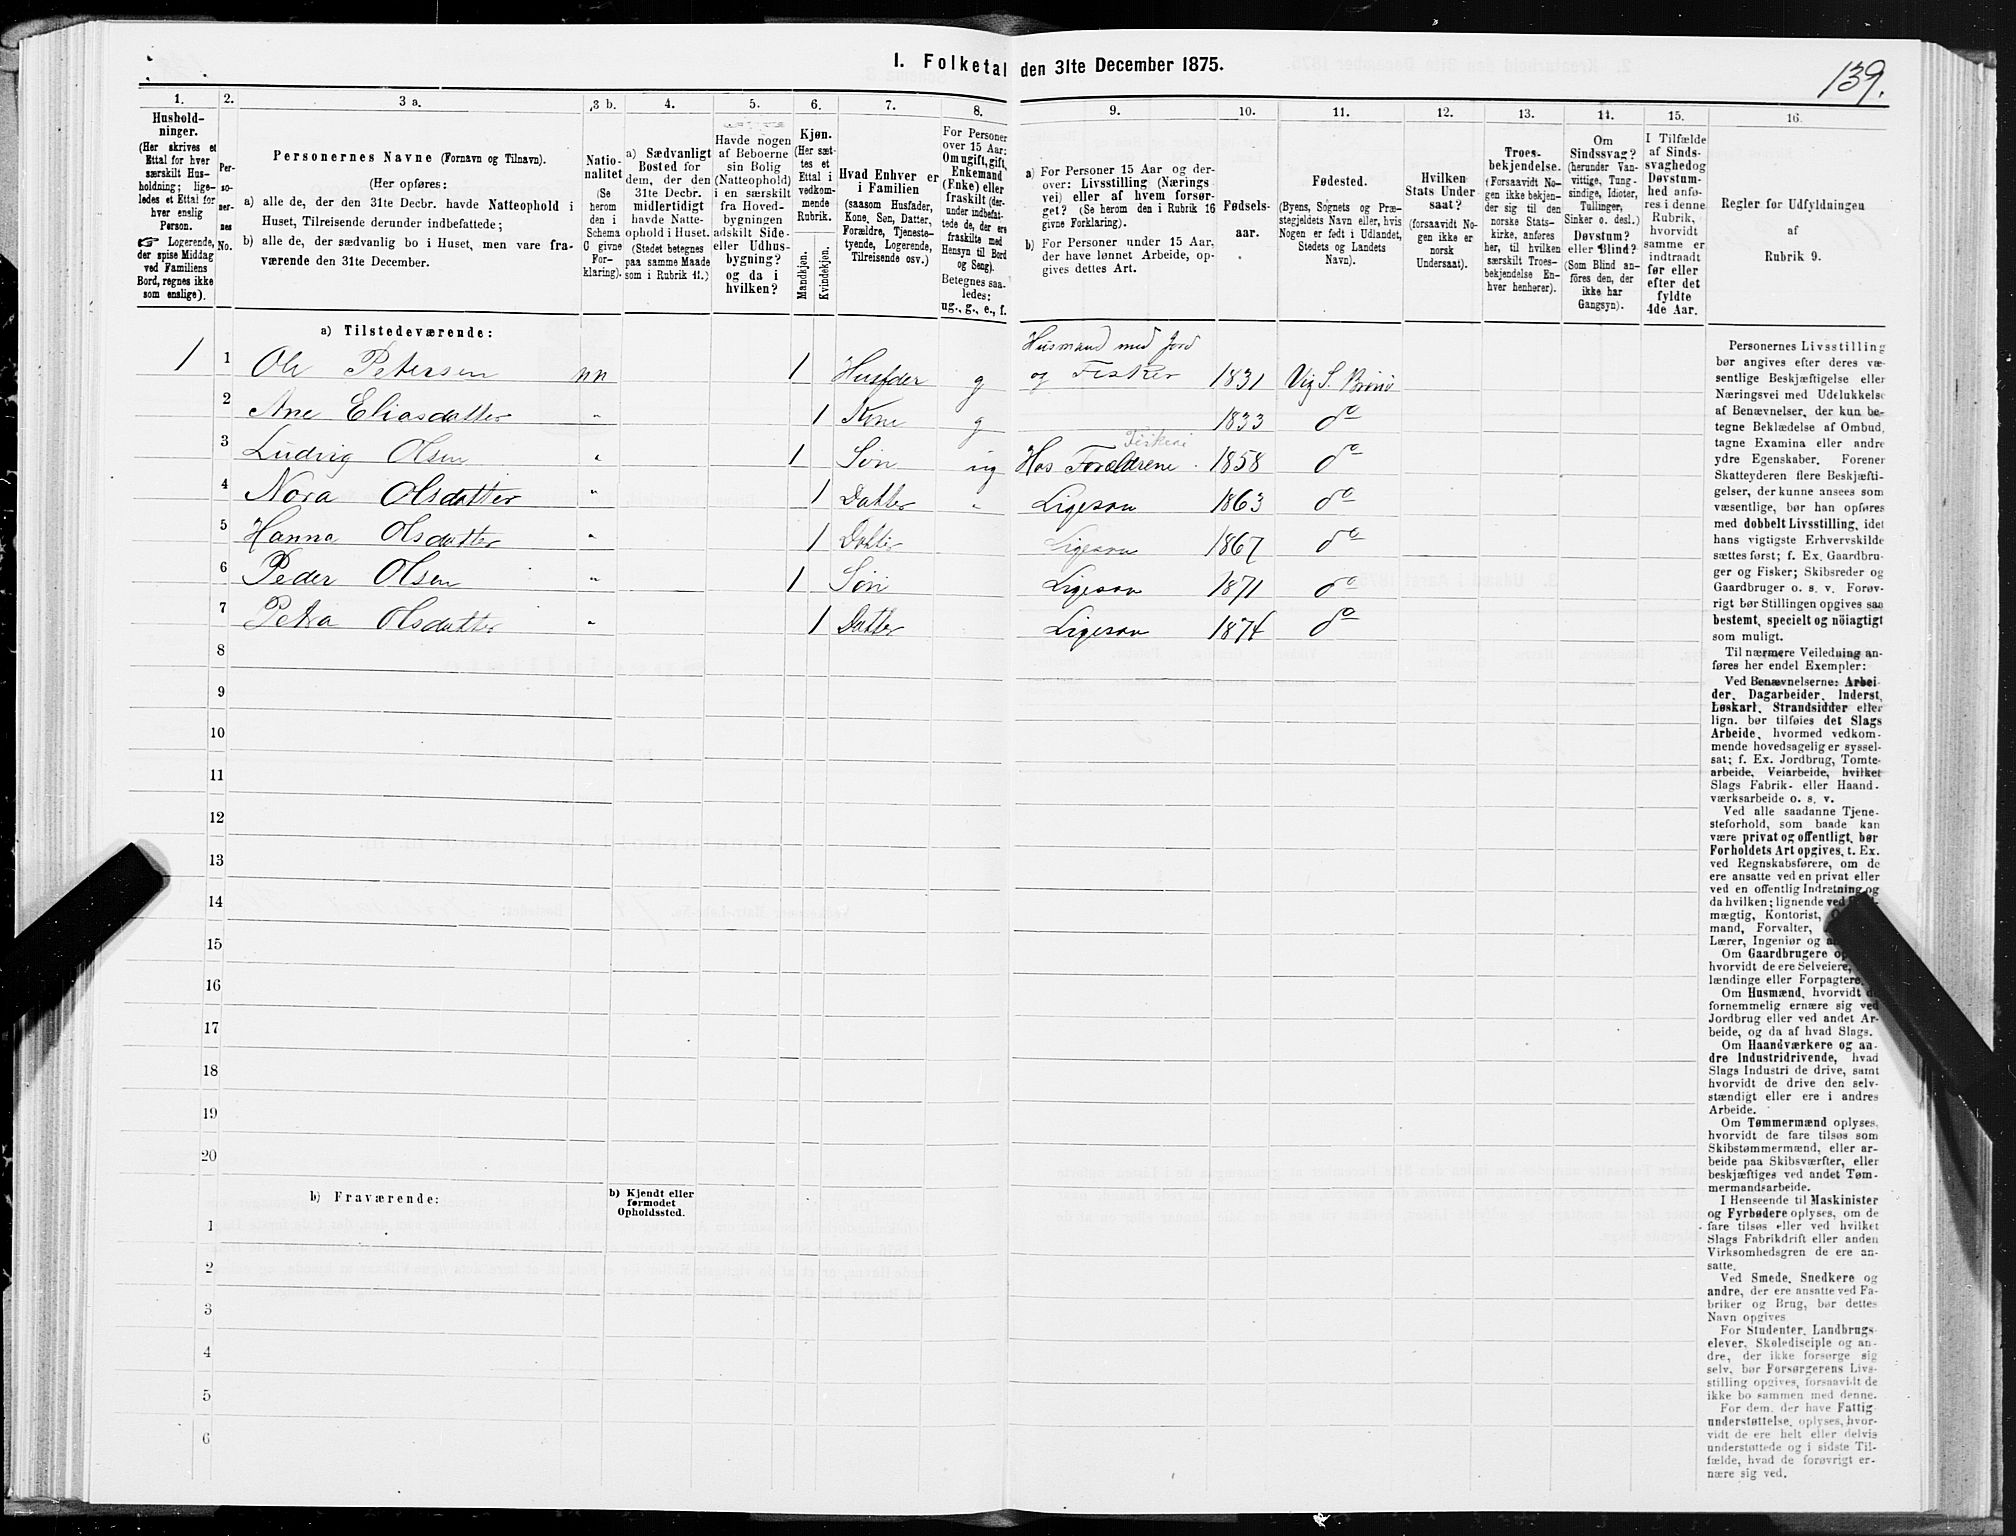 I. Folketal den 31te December 1875.
139.
1. 2. 3 a. 3 b. 4. 5. 6. 7. 8. 9. 10. 11. 12. 13. 14. 15. 16.
Hushold-
ninger.
(Her skrives et
Ettal for hver
særskilt Hus-
holdning; lige-
ledes et Ettal for
hver enslig
Person.
☞ Logerende,
der spise Middag
ved Familiens
Bord, regnes ikke
som enslige).
Per-
so-
ner-
nes
No.
Personernes Navne (Fornavn og Tilnavn).
(Her opføres:
a) alle de, der den 31te Decbr. havde Natteophold i
Huset, Tilreisende derunder indbefattede;
b) alle de, der sædvanlig bo i Huset, men vare fra-
værende den 31te December.
Natio-
nalitet
(Se
herom
den i
Schema
C givne
For-
klaring).
a) Sædvanligt
Bosted for
dem, der den
31te Decbr.
midlertidigt
havde Natte-
ophold i Huset.
(Stedet betegnes
paa samme Maade
som i Rubrik 11.)
Havde nogen
af Beboerne
sin Bolig
(Natteophold)
i en særskilt
fra Hoved-
bygningen
adskilt Side-
eller Udhus-
bygning?
og da i
hvilken?
Kjøn.
(Her sæt-
tes et
Ettal i
vedkom-
mende
Rubrik.
Mandkjøn.
Kvindekjøn.
Hvad Enhver er
i Familien
(saasom Husfader,
Kone, Søn, Datter,
Forældre, Tjeneste-
tyende, Logerende,
Tilreisende osv.)
For Personer
over 15 Aar:
Om ugift, gift,
Enkemand
(Enke) eller
fraskilt (der-
under indbefat-
tede de, der ere
fraskilte med
Hensyn til Bord
og Seng).
Betegnes saa-
ledes:
ug., g., e., f.
a) For Personer 15 Aar og der-
over: Livsstilling (Nærings
vei) eller af hvem forsør-
get? (Se herom den i Rubrik 16
givne Forklaring.)
b) For Personer under 15 Aar,
der have lønnet Arbeide, op-
gives dettes Art.
Fødsels-
aar.
Fødested.
(Byens, Sognets og Præ-
stegjeldets Navn eller, hvis
Nogen er født i Udlandet,
Stedets og Landets
Navn).
Hvilken
Stats Under
saat?
(forsaavidt No-
gen ikke er
norsk
Undersaat).
Troes-
bekjendelse.
(Forsaavidt No-
gen ikke bekjen-
der sig til den
norske Stats-
kirke, anføres
her, til hvilken
særskilt Troes-
bekjendelse En-
hver henhører).
Om
Sindssvag?
(herunder Van-
vittige, Tung-
sindige, Idioter,
Tullinger,
Sinker o. desl.)
Døvstum?
eller Blind?
(Som Blind an-
føres den, der
ikke har
Gangsyn).
I Tilfælde
af Sinds-
svaghed og
Døvstum-
hed anfø-
res i denne
Rubrik,
hvorvidt
samme er
indtraadt
før eller
efter det
fyldte
4de Aar.
Regler for Udfyldningen
af
Rubrik 9.
a) Tilstedeværende:
Husmand med Jord
1 1 Ole Petersen nn 1 Husfder g og Fisker 1831 Vig S. Brønø
2 Ane Eliasdatter " 1 Kone g 1833 do
Fiskeri
3 Ludvig Olsen " 1 Søn ug Hos Forældrene 1858 do
4 Nora Olsdatter " 1 Datter " Ligesaa 1863 do
5 Hanna Olsdatter " 1 Datter Ligesaa 1867 do
6 Peder Olsen " 1 Søn Ligesaa 1871 do
7 Petra Olsdatter " 1 Datter Ligesaa 1874 do
8
9
10
11
12
13
14
15
16
17
18
19
20
b) Fraværende:
b) Kjendt eller
formodet
Opholdssted.
1
2
3
4
5
6
Personernes Livsstilling
bør angives efter deres væ-
sentlige Beskjæftigelse eller
Næringsvei med Udelukkelse
af Benævnelser, der kun be-
tegne Beklædelse af Ombud,
tagne Examina eller andre
ydre Egenskaber. Forener
Skatteyderen flere Beskjæfti-
gelser, der kunne ansees som
væsentlige, bør han opføres
med dobbelt Livsstilling, idet
hans vigtigste Erhvervskilde
sættes først; f. Ex. Gaardbru-
ger og Fisker; Skibsreder og
Gaardbruger o. s. v. Forøv-
rigt bør Stillingen opgives saa
bestemt, specielt og nöiagtigt
som muligt.
Til nærmere Veiledning an-
føres her endel Exempler:
Ved Benævnelserne: Arbei-
der, Dagarbeider, Inderst,
Løskarl, Strandsidder eller
lign. bør tilføies det Slags
Arbeide, hvormed vedkom-
mende hovedsagelig er syssel-
sat; f. Ex. Jordbrug, Tomte-
arbeide, Veiarbeide, hvilket
Slags Fabrik- eller Haand-
værksarbeide o. s. v.
Ved alle saadanne Tjene-
steforhold, som baade kan
være privat og offentligt, bør
Forholdets Art opgives, t. Ex.
ved Regnskabsførere, om de
ere ansatte ved en privat eller
ved en offentlig Indretning og
da hvilken; lignende ved
mægtig, Kontorist,
mand, Forvalter,
Lærer, Ingeniør og
Om Gaardbrugere
hvorvidt de ere Selveiere,
lændinge eller Forpagtere.
Om Husmænd, hvorvidt de
fornemmelig ernære sig ved
Jordbrug eller ved andet Ar-
beide, og da af hvad Slags.
Om Haandværkere og an-
dre Industridrivende, hvad
Slags Industri de drive, samt
hvorvidt de drive den selv-
stændigt eller ere i andres
Arbeide.
Om Tømmermænd oplyses,
hvorvidt de fare tilsøs som
Skibstømmermænd, eller ar-
beide paa Skibsværfter, eller
beskjæftiges ved andet Tøm-
mermandsarbeide.
I Henseende til Maskinister
og Fyrbødere oplyses, om de
fare tilsøs eller ved hvilket
Slags Fabrikdrift eller anden
Virksomhedsgren de ere an-
satte.
Ved Smede, Snedkere og
andre, der ere ansatte ved Fa-
briker og Brug, bør dettes
Navn opgives.
For Studenter, Landbrugs-
elever, Skoledisciple og an-
dre, der ikke forsørge sig
selv, bør Forsørgerens Livs-
stilling opgives, forsaavidt de
ikke bo sammen med denne.
For dem, der have Fattig-
understøttelse, oplyses, hvor-
vidt de ere helt eller delvis
understøttede og i sidste Til-
fælde, hvad de forøvrigt er-
nære sig ved.